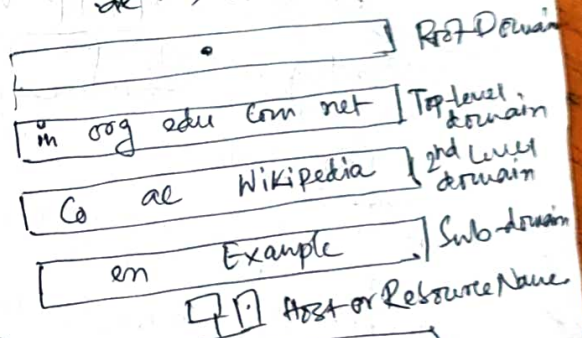 . Root Domain
in org edu com net Top-level
domain
Co ac Wikipedia 2nd Level
domain
en Example Sub-domain
Host or Resource Name